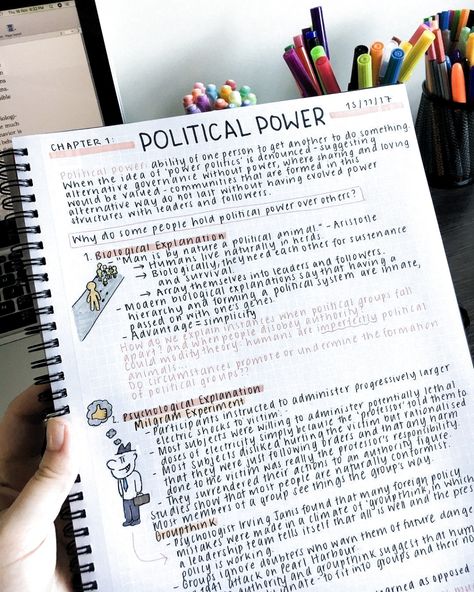 CHAPTER 1:
POLITICAL POWER
15/11/17
Political power: ability of one person to get another to do something.
When the idea of 'power politics' is denounced - suggesting
alternative governance without power, where sharing and loving
would be valued - communities that are formed in this
alternative way do not last without having evolved power
structures with leaders and followers.
Why do some people hold political power over others?
1. Biological Explanation
- "Man is by nature a political animal." - Aristotle
→ Humans live naturally in herds
→ Biologically, they need each other for sustenance
and survival.
→ Array themselves into leaders and followers.
- Modern biological explanations say that having a
hierarchy and forming a political system are innate,
passed on with one's genes.
- Advantage - simplicity
How do we explain instances when political groups fall
apart? and when people disobey authority?
Could modify theory: humans are imperfectly political
animals...
Do circumstances promote or undermine the formation
of political groups??
Psychological Explanation
Milgram Experiment
- Participants instructed to administer progressively larger
electric shocks to victim.
- Most subjects were willing to administer potentially lethal
doses of electricity simply because the 'professor' told them to
- Most subjects disliked hurting the victim but rationalised
that they were just following orders and that any harm
done to the victim was really the professor's responsibility.
- They surrendered their actions to an authority figure.
Studies show that most people are naturally conformist.
Most members of a group see things the group's way.
Groupthink
- Psychologist Irving Janis found that many foreign policy
mistakes were made in a climate of 'groupthink', in which
a leadership team tells itself that all is well and the
policy is working.
- Groups ignore doubters who warn them of future
attack on Pearl Harbour.
authority and groupthink suggest that
innate - to fit into groups and their
learned as opposed